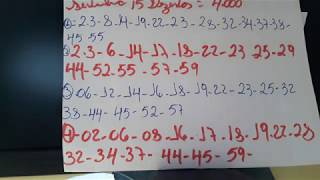 15 Dezenas = 4.000
2.3-8-14-19-22-23-28-32-34-37-38-
45-55
2.3-6-14-17-18-22-23-25-29
44-52-55-57-59
5-06-12-14-16-18-19-22-23-25-32
38-44-45-52-57
02-06-08-16-17-18-19.22-28
32-34-37-44-45-59-